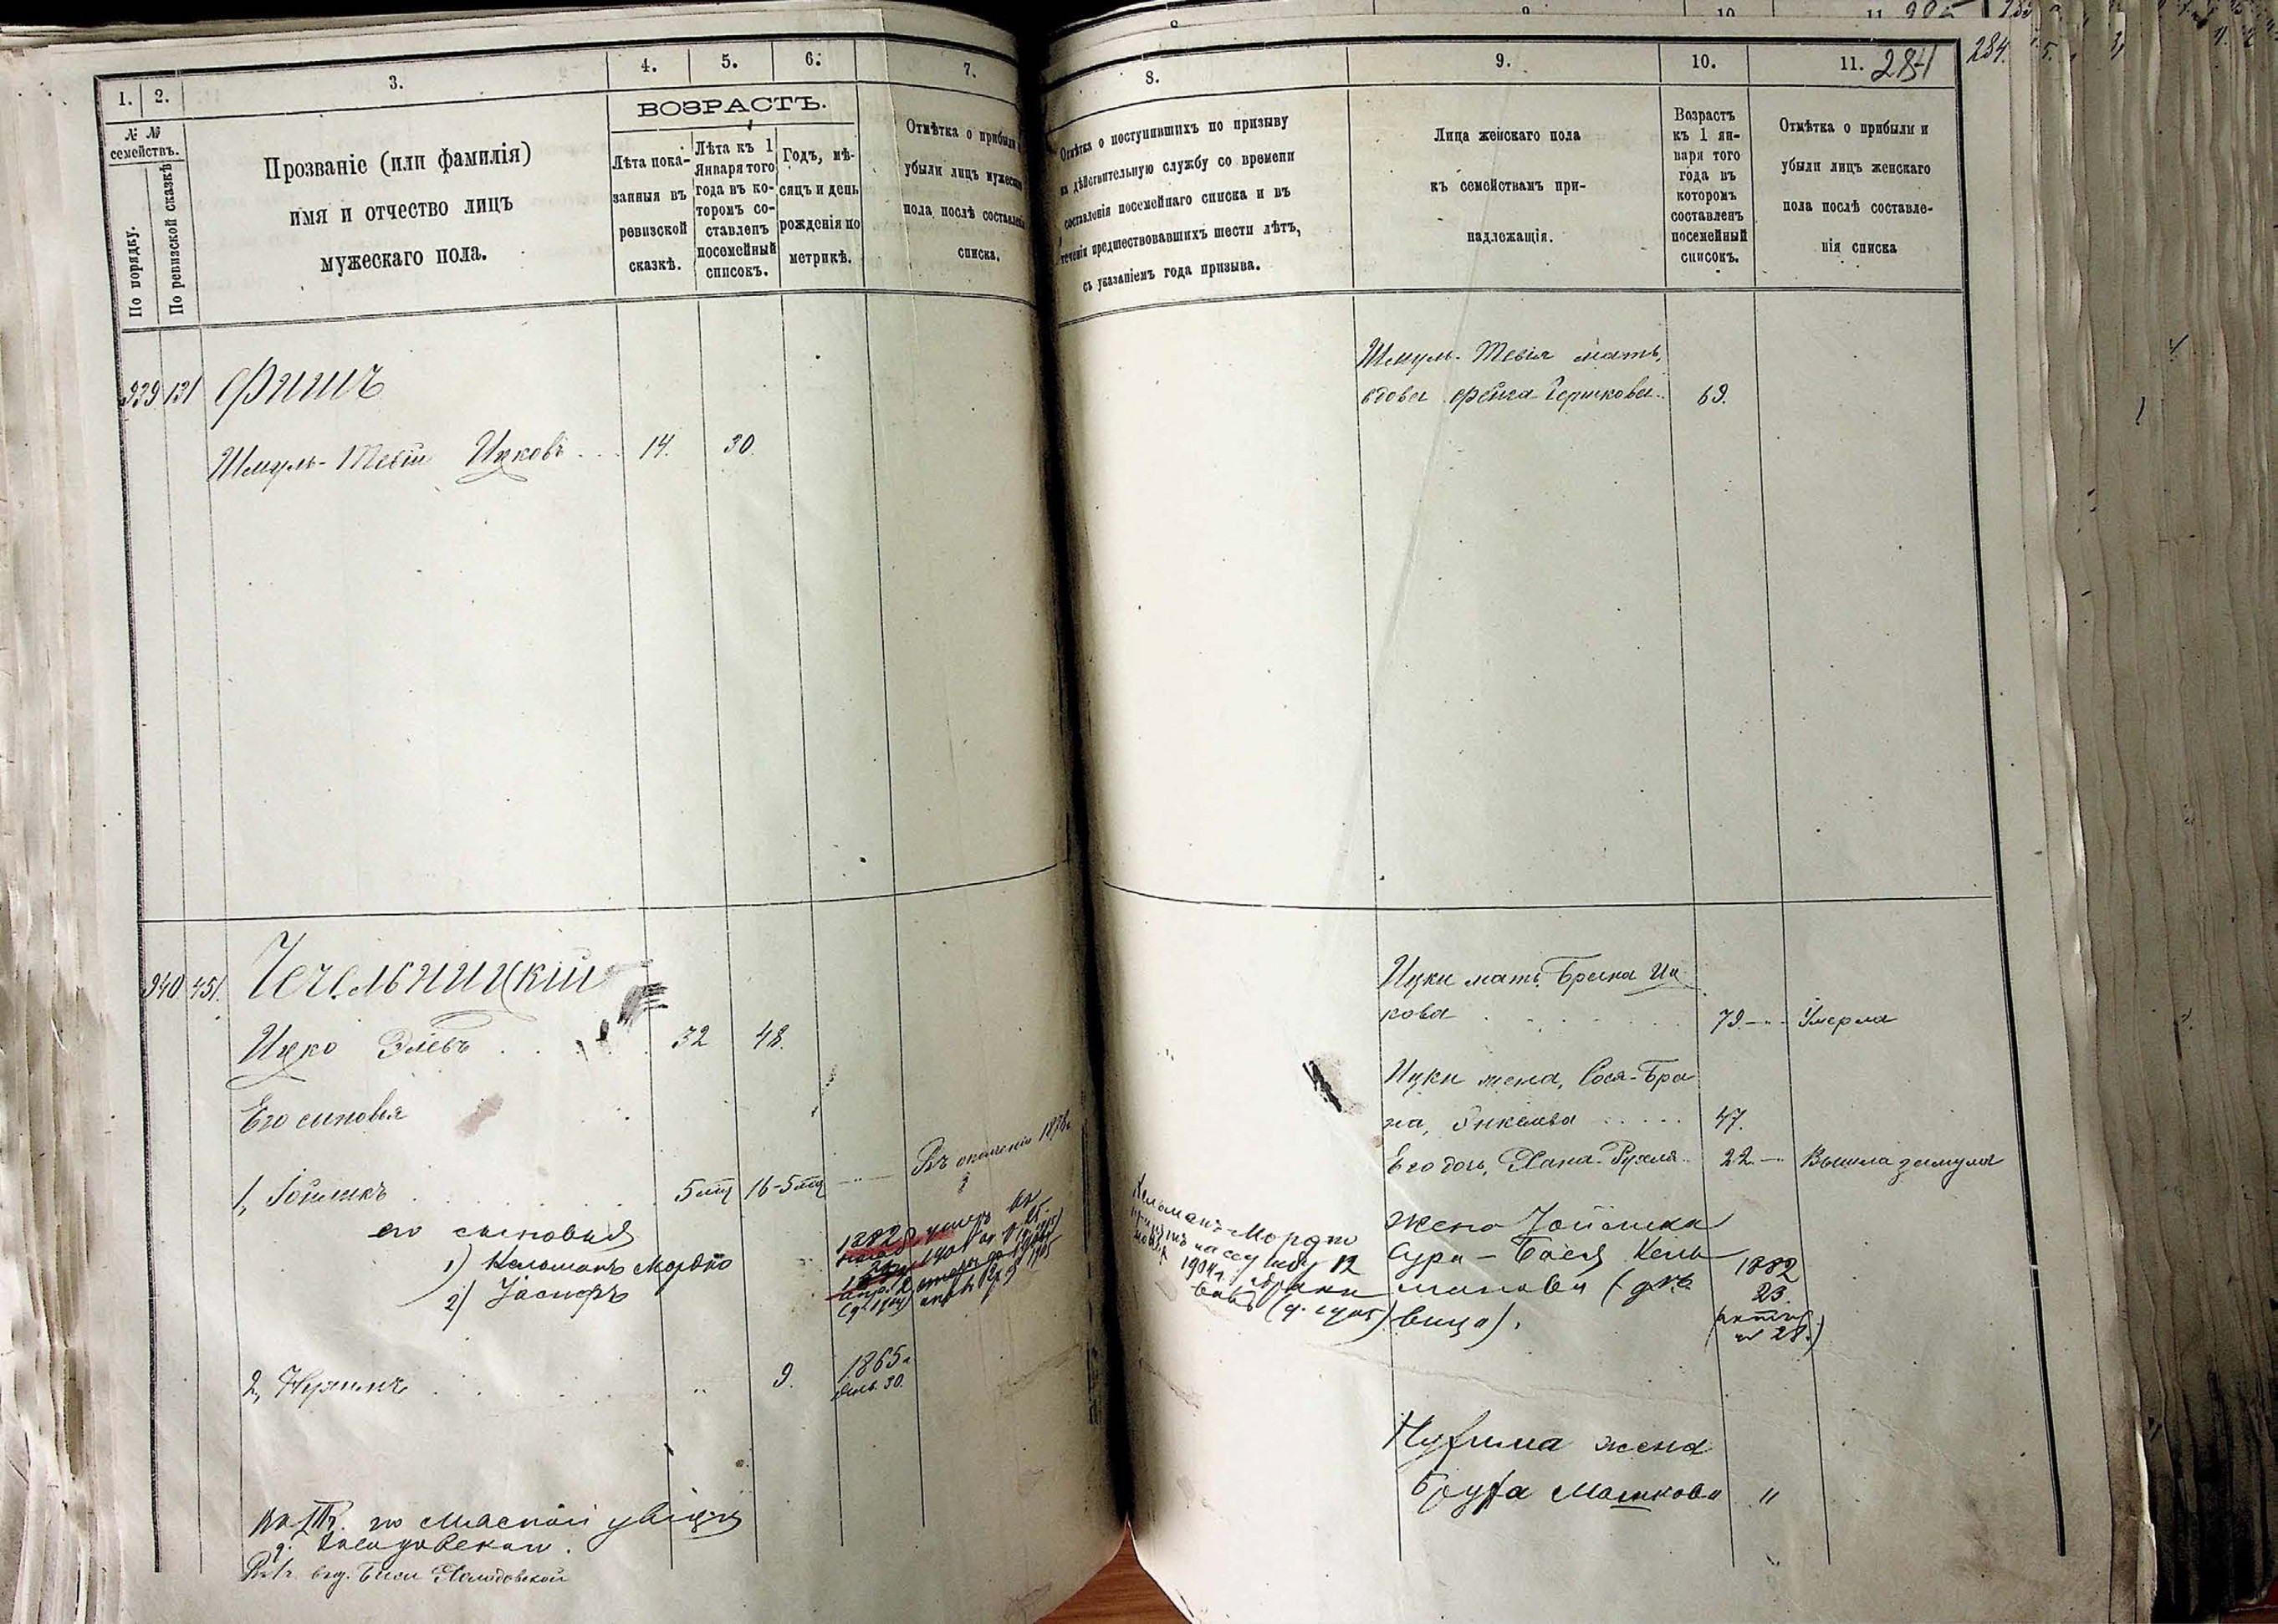 1. 2. 3. 4. 5. 6. 7.
№ № семействъ.
По порядку.
По ревизской сказкѣ
Прозваніе (или фамилія)
имя и отчество лицъ
мужескаго пола.
ВОЗРАСТЪ.
Лѣта пока-
занныя въ
ревизской
сказкѣ.
Лѣта къ 1
Января того
года въ ко-
торомъ со-
ставленъ
посемейный
списокъ.
Годъ, мѣ-
сяцъ и день
рожденія по
метрикѣ.
Отмѣтка о прибыли и
убыли лицъ мужескаго
пола послѣ составленія
списка.
939 131 Фишъ
Шмуль-Тевія Ицковъ 14. 30.
940 451. Чечельницкій
Ицко Элевъ 32 48.
Его сыновья
1, Іойликъ 5 16-5 Въ ополченіи 187
его сыновья
1) Кельманъ Мордко
2) Іосифъ
1882
2, Нухимъ " 9. 1865 г.
30.
по Спаской улицѣ
вид. Холодовской
8. 9. 10. 11. 284
284.
Отмѣтка о поступившихъ по призыву
на дѣйствительную службу со времени
составленія посемейнаго списка и въ
теченіи предшествовавшихъ шести лѣтъ,
съ указаніемъ года призыва.
Лица женскаго пола
къ семействамъ при-
надлежащія.
Возрастъ
къ 1 ян-
варя того
года въ
которомъ
составленъ
посемейный
списокъ.
Отмѣтка о прибыли и
убыли лицъ женскаго
пола послѣ составле-
нія списка
Шмуль-Тевія мать,
вдова Фейга Гершкова 69.
Ицки мать Брана Иц
кова 79 Умерла
Ицки жена, Сося-Бра
на, Янкелева 47.
Его дочь, Хана-Рухля 22 Вышла замужъ
Кельманъ-Мордко
12
1904 г.
Жена Іойлика
Сура-Бася Кель
манова
вица).
1882
23
28.)
Нухима жена
Бруха Мошкова "